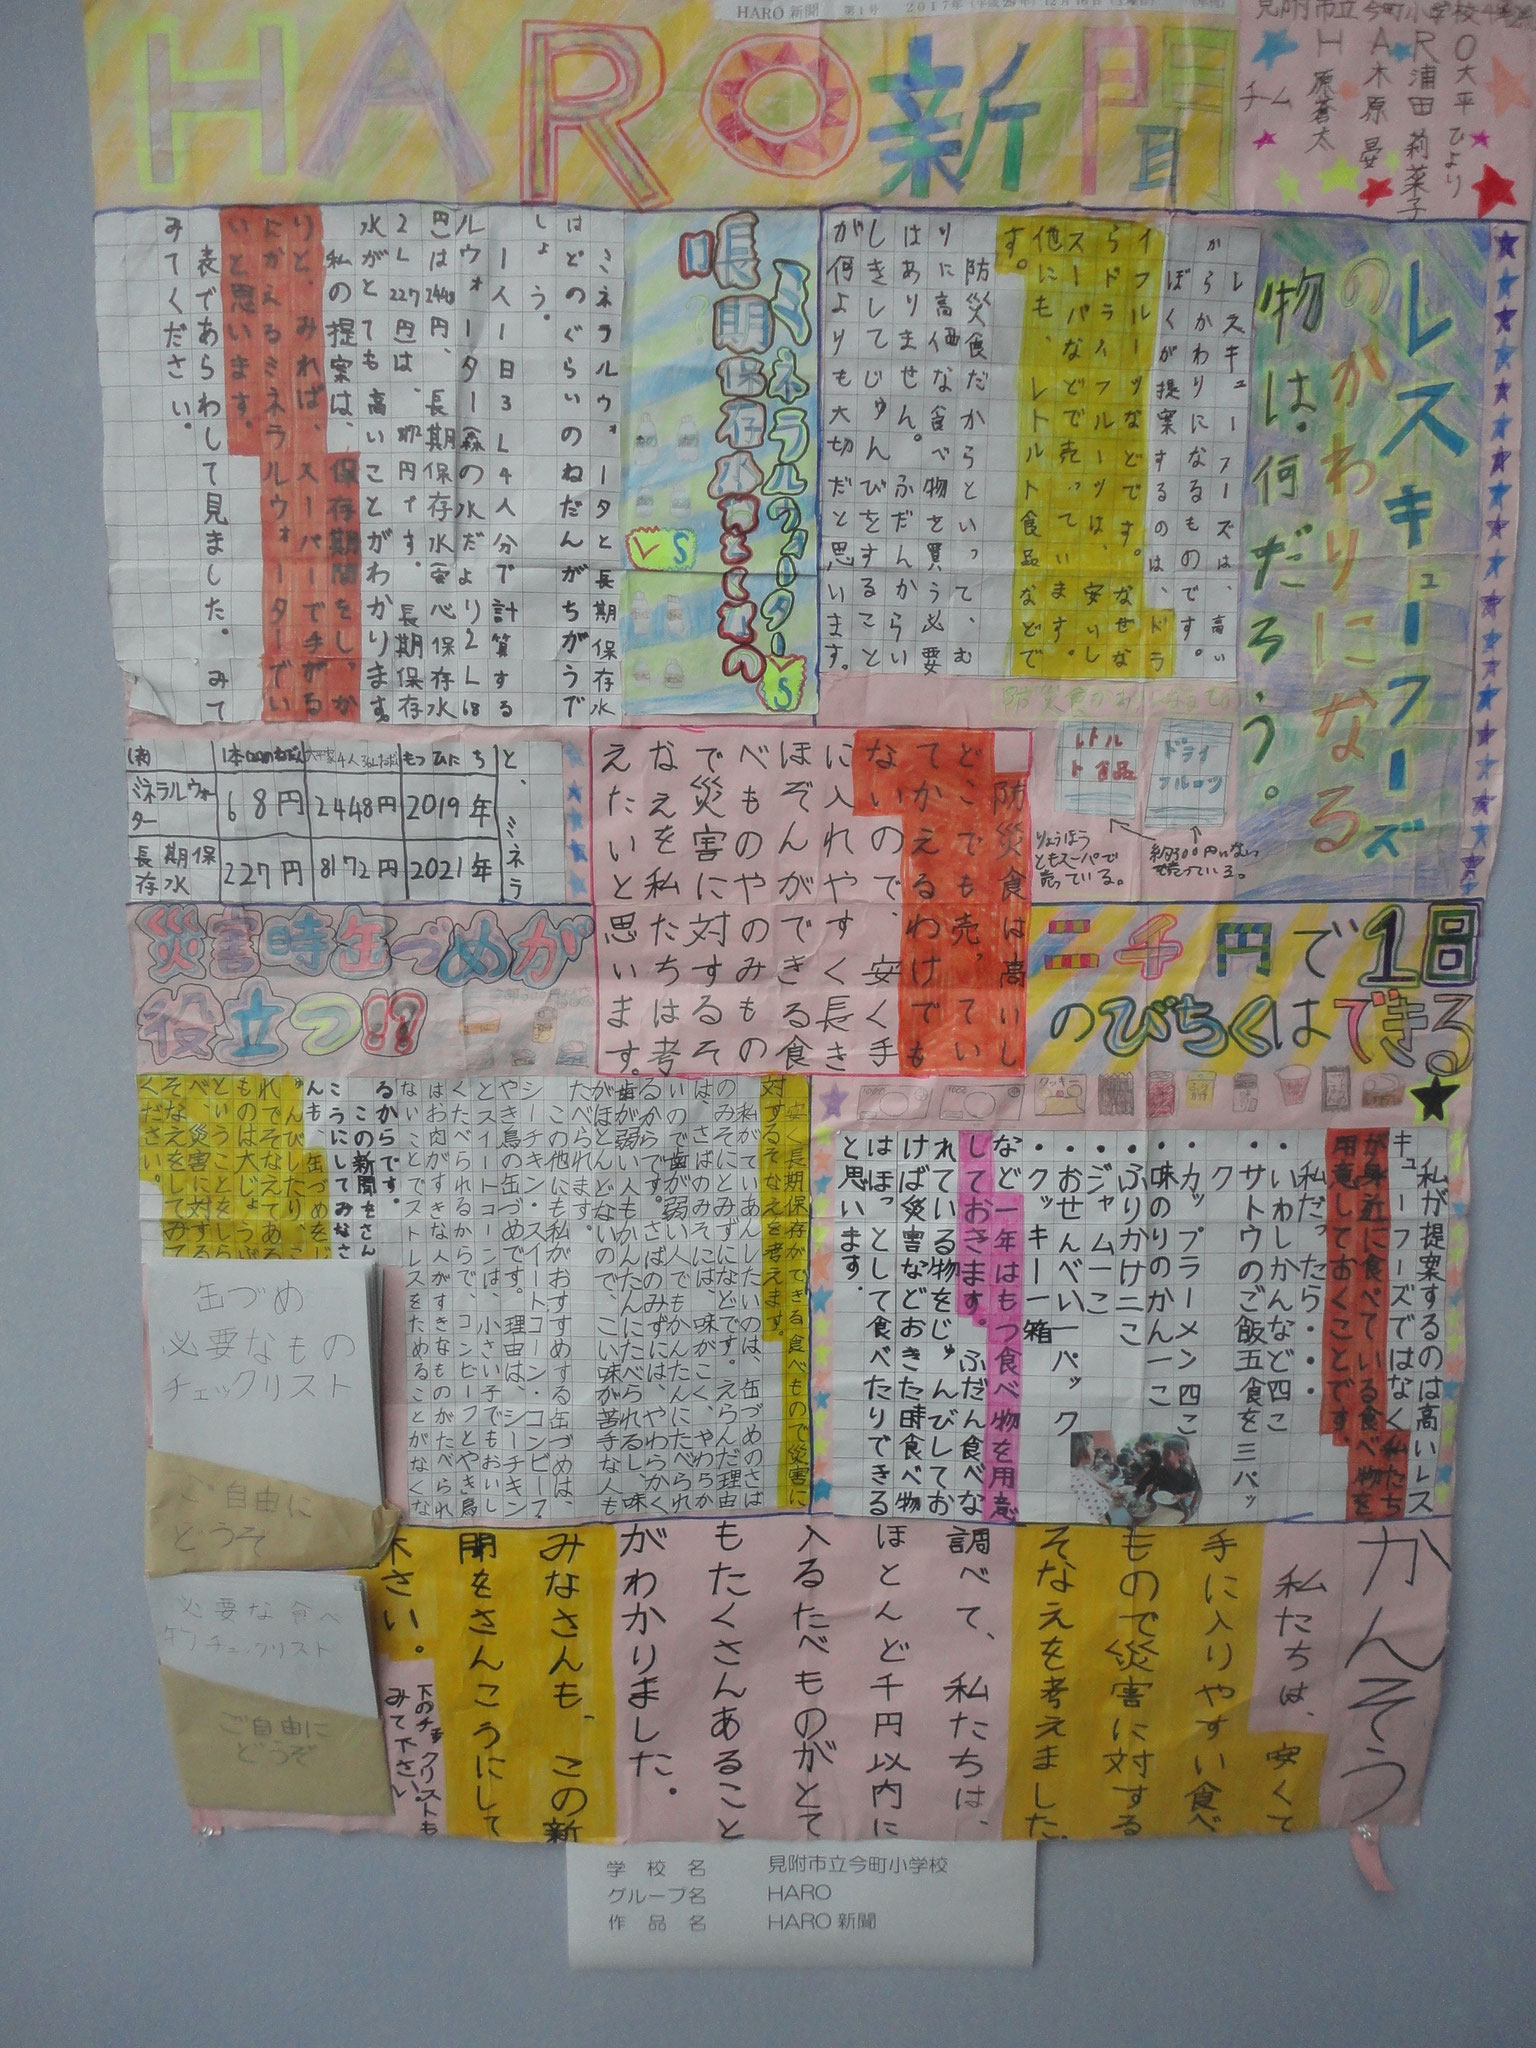 HARO新聞 第1号 2017年(平成29年)12月16日(土曜日)
HARO新聞
見附市立今町小学校
チーム
H 原蒼太
A 木原 晏
R 浦田 莉菜子
O 大平 ひより
レスキューフーズ
のかわりになる
物は何だろう。
レスキューフーズは、高い
からかわりになるものです。
ぼくが提案するのは、ドラ
イフルーツなどです。なぜな
らドライフルーツは、安いし
スーパーなどで売っています。
他にも、レトルト食品などで
す。
防災食だからといって、む
りに高価な食べ物を買う必要
はありません。ふだんからい
しきしてじゅんびをすること
が何よりも大切だと思います。
レトルト食品
ドライフルーツ
りょうほう
ともスーパーで
売っている。
約300円いないで
売っている。
ミネラルウォーターVS
長期保存水
VS
ミネラルウォータと長期保存水
はどのぐらいのねだんがちがうで
しょう。
1人1日3L4人分で計算する
ルウォーター森の水だより2L68
円は2448円、長期保存水安心保存水
2L227円は、8172円です。長期保存
水がとても高いことがわかります。
私の提案は、保存期間をしっか
りと、みれば、スーパーで手がる
にかえるミネラルウォーターでい
いと思います。
表であらわして見ました。みて
みてください。
と、ミネラ
(表)
1本のねだん
4人3日L
もつひにち
ミネラルウォーター
68円
2448円
2019年
長期保存水
227円
8172円
2021年
防災食は高いし
どこでも売ってい
てかえるわけでも
ないので、安く手
に入れやすく長き
ほぞんができる食
べものやのみもの
で災害に対するそ
なえを私たちは考
えたいと思います。
二千円で1日
のびちくはできる
私が提案するのは高いレス
キューフーズではなく私たち
が身近に食べている食べ物を
用意しておくことです。
私だったら・・・
・いわしかんなど四こ
・サトウのご飯五食を三パッ
ク
・カップラーメン四こ
・味のりのかん一こ
・ふりかけ二こ
・ジャム一こ
・おせんべい一パック
・クッキー一箱
など一年はもつ食べ物を用意
しておきます。ふだん食べな
れている物をじゅんびしてお
けば災害などおきた時食べ物
はほっとして食べたりできる
と思います。
災害時缶づめが
役立つ!?
安く長期保存ができる食べもので災害に
対するそなえを考えます。
私がていあんしたいのは、缶づめのさば
のみそにとみずになどです。えらんだ理由
は、さばのみそには、味がこく、やわらか
いので歯が弱い人でもかんたんにたべられ
るからです。さばのみずには、やわらかく
歯が弱い人もかんたんにたべられるし、味
がほとんどないので、こい味が苦手な人も
たべられます。
この他にも私がおすすめする缶づめは、
シーチキン・スイートコーン・コンビーフ・
やき鳥の缶づめです。理由は、シーチキン
とスイートコーンは、小さい子でもおいし
くたべられるからで、コンビーフとやき鳥
はお肉がすきな人がすきなものがたべられ
ないことでストレスをためることがなくな
るからです。
この新聞をさん
こうにしてみなさ
んも、缶づめをじ
ゅんびしたり、こ
れでそなえてある
ものは大じょうぶ
ということをしら
べ、災害に対する
そなえをしてみて
ください。
缶づめ
必要なもの
チェックリスト
ご自由に
どうぞ
必要な食べ
チェックリスト
ご自由に
どうぞ
かんそう
私たちは、安くて
手に入りやすい食べ
もので災害に対する
そなえを考えました。
調べて、私たちは、
ほとんど千円以内に
入るたべものがとて
もたくさんあること
がわかりました。
みなさんも、この新
聞をさんこうにして
下さい。
下のチェックリストも
みて下さい
学校名 見附市立今町小学校
グループ名 HARO
作品名 HARO新聞